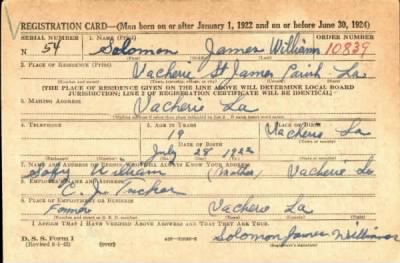 REGISTRATION CARD—(Men born on or after January 1, 1922 and on or before June 30, 1924)
SERIAL NUMBER 1. NAME (Print) ORDER NUMBER
N 54 Solomon James William 10839
(First) (Middle) (Last)
2. PLACE OF RESIDENCE (Print)
Vacherie St James Parish La.
[THE PLACE OF RESIDENCE GIVEN ON THE LINE ABOVE WILL DETERMINE LOCAL BOARD
JURISDICTION; LINE 2 OF REGISTRATION CERTIFICATE WILL BE IDENTICAL]
3. MAILING ADDRESS
Vacherie La
4. TELEPHONE 5. AGE IN YEARS 6. PLACE OF BIRTH
19 Vacherie
DATE OF BIRTH
July 28 1922 La
7. NAME AND ADDRESS OF PERSON WHO WILL ALWAYS KNOW YOUR ADDRESS
William (Mother) Vacherie La
8. EMPLOYER'S NAME AND ADDRESS
C. J.
9. PLACE OF EMPLOYMENT OR BUSINESS
Vacherie La
I AFFIRM THAT I HAVE VERIFIED ABOVE ANSWERS AND THAT THEY ARE TRUE.
D. S. S. Form 1
Solomon James Williams
(Registrant's signature)